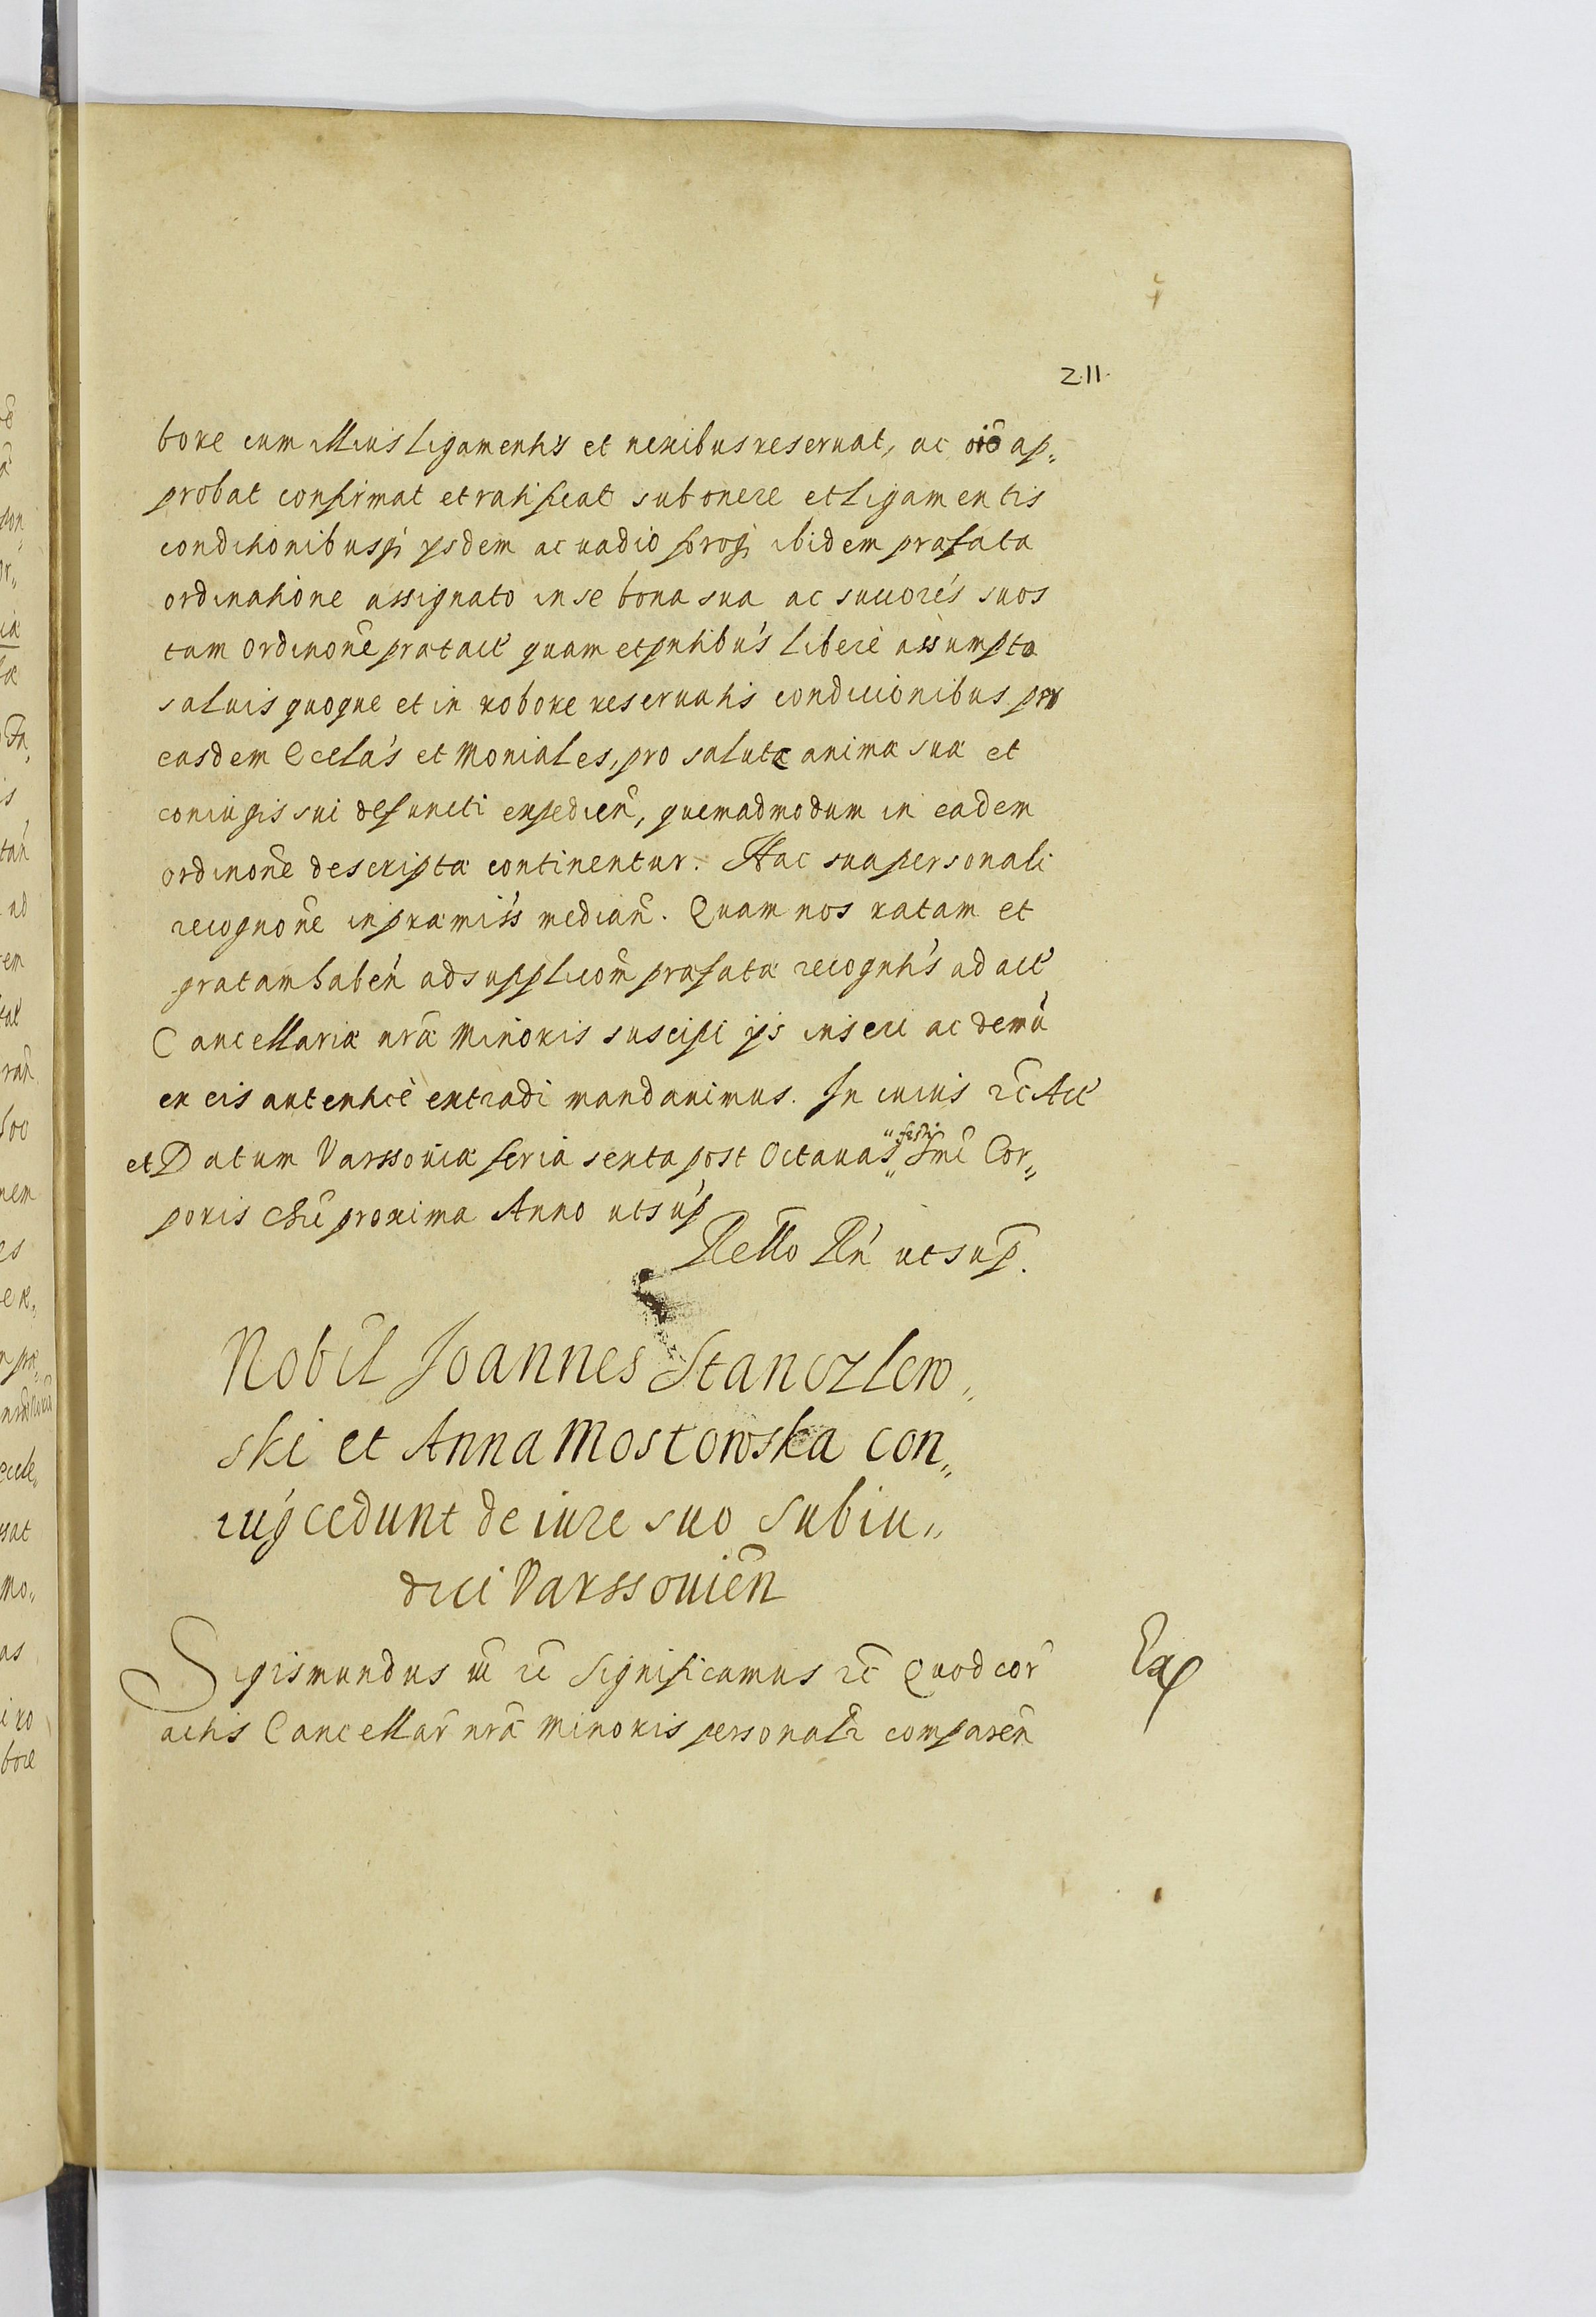 211.
bore cum illius ligamentis et nexibus reseruat, ac oīo ap„
probat confirmat et ratificat sub onere et ligamentis
conditionibusq; ysdem ac uadio foroq; ibidem præfata
ordinatione assignato in se bona sua ac succorés suos
tam Ordinonē prætact quam et pntibus liberè assumpto
saluis quoque et in robore reseruatis condicionibus per
easdem Ecclas et Moniales, pro salute animæ suæ et
coniugis sui defuncti expedien̄, quemadmodum in eadem
ordinonē descripta continentur. Hac sua personali
recognonē in præmiss median̄. Quam nos ratam et
gratam haben̄ ad supplicom̄ præfatæ recogntis ad act
Cancellariæ nr̄æ Minoris suscipi ys inseri ac demū
ex eis autenticè extradi mandauimus. In cuius rc̄ Act
et Datum Varssouiæ feria sexta post Octauas festi Sm̄i Cor„
poris Chri proxima Anno ut sup
Rello Rn̄ ut sup̄.
Nobil Joannes Stanczlew„
ski et Anna Mostowska con„
iug cedunt de iure suo Subiu„
dici Varssouien̄
Sigismundus III rc̄ Significamus rc̄ Quod cor̄
actis Cancellar̄ nr̄æ Minoris personalr comparen̄
Exp